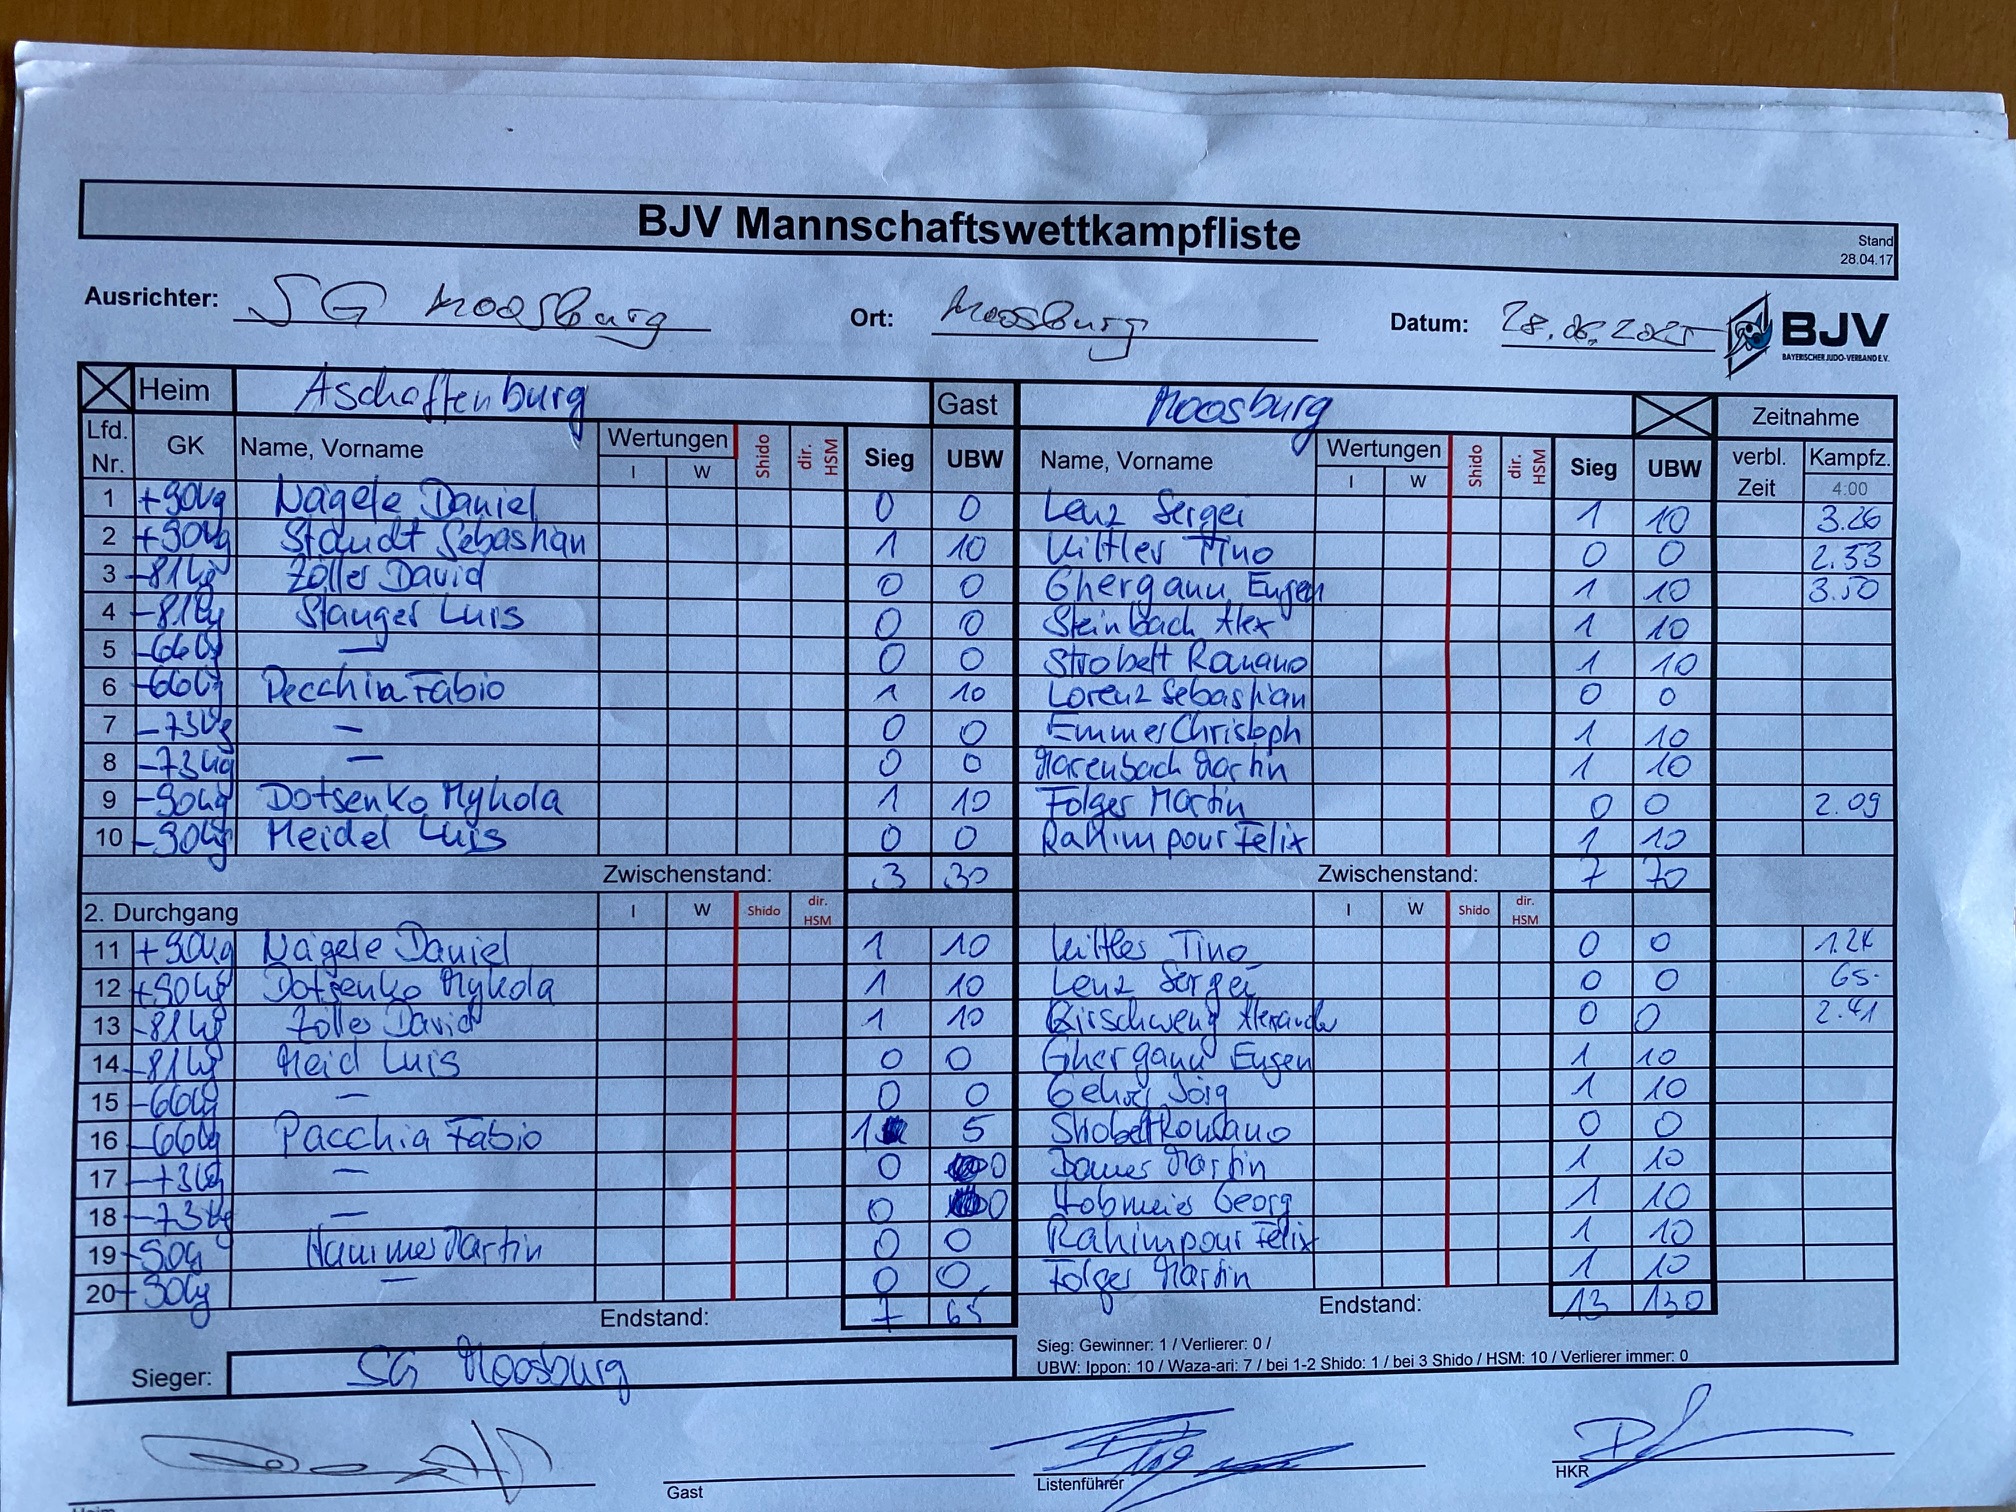 BJV Mannschaftswettkampfliste
Stand
28.04.17
Ausrichter: SG Moosburg Ort: Moosburg Datum: 28.06.2025
BJV
BAYERISCHER JUDO-VERBAND E.V.
Heim Aschaffenburg Gast Moosburg Zeitnahme
Lfd. Nr. GK Name, Vorname Wertungen I W Shido dir. HSM Sieg UBW Name, Vorname Wertungen I W Shido dir. HSM Sieg UBW verbl. Zeit Kampfz. 4:00
1 +90kg Nägele Daniel 0 0 Lenz Sergei 1 10 3.26
2 +90kg Staudt Sebastian 1 10 Kittler Tino 0 0 2.53
3 -81kg Zöller David 0 0 Ghergann Eugen 1 10 3.50
4 -81kg Stanger Luis 0 0 Steinbach Alex 1 10
5 -66kg — 0 0 Strobelt Romano 1 10
6 -66kg Pecchia Fabio 1 10 Lorenz Sebastian 0 0
7 -73kg — 0 0 Emmer Christoph 1 10
8 -73kg — 0 0 Marenbach Martin 1 10
9 -90kg Dotsenko Mykola 1 10 Folger Martin 0 0 2.09
10 -90kg Meidel Luis 0 0 Rahimpour Felix 1 10
Zwischenstand: 3 30 Zwischenstand: 7 70
2. Durchgang I W Shido dir. HSM I W Shido dir. HSM
11 +90kg Nägele Daniel 1 10 Kittler Tino 0 0
12 +90kg Dotsenko Mykola 1 10 Lenz Sergei 0 0
13 -81kg Zöller David 1 10 Alexander 0 0 2.41
14 -81kg Meid Luis 0 0 Ghergann Eugen 1 10
15 -66kg — 0 0 Jörg 1 10
16 -66kg Pacchia Fabio 1 5 Strobelt Romano 0 0
17 -73kg — 0 0 Martin 1 10
18 -73kg — 0 0 Hobmeier Georg 1 10
19 -90kg Hammer Martin 0 0 Rahimpour Felix 1 10
20 -90kg — 0 0 Folger Martin 1 10
Endstand: 7 65 Endstand: 13 130
Sieger: SG Moosburg
Sieg: Gewinner: 1 / Verlierer: 0 /
UBW: Ippon: 10 / Waza-ari: 7 / bei 1-2 Shido: 1 / bei 3 Shido / HSM: 10 / Verlierer immer: 0
Heim Gast Listenführer HKR